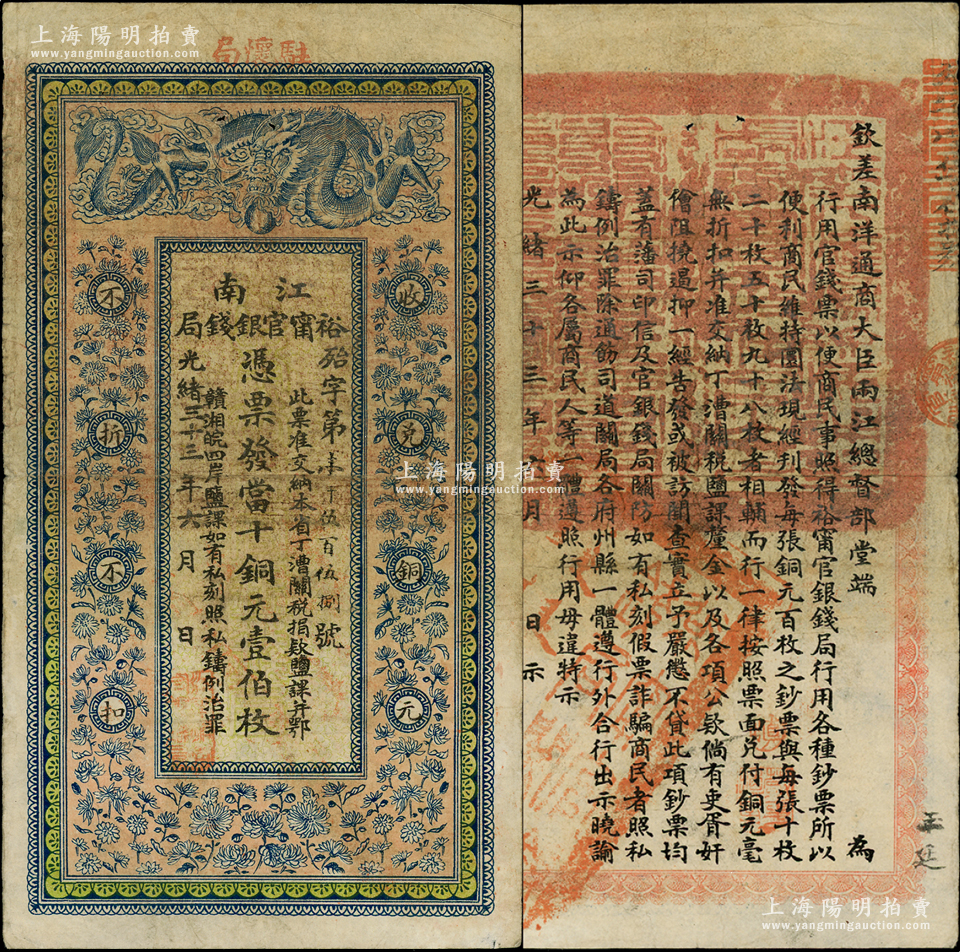 上海陽明拍賣
www.yangmingauction.com
駐懷局
江南
裕甯官銀錢局
收兌銅元
不折不扣
殆字第
伍百伍捌號
此票准交納本省丁漕關稅捐款鹽課并鄂
憑票發當十銅元壹伯枚
贛湘皖四岸鹽課如有私刻照私鑄例治罪
光緒三十三年六月 日
欽差南洋通商大臣兩江總督部堂端 為
行用官錢票以便商民事照得裕甯官銀錢局行用各種鈔票所以
便利商民維持圜法現經刊發每張銅元百枚之鈔票與每張十枚
二十枚五十枚九十八枚者相輔而行一律按照票面兌付銅元毫
無折扣并准交納丁漕關稅鹽課釐金以及各項公款倘有吏胥奸
儈阻撓逼抑一經告發或被訪聞查實立予嚴懲不貸此項鈔票均
蓋有藩司印信及官銀錢局關防如有私刻假票詐騙商民者照私
鑄例治罪除通飭司道關局各府州縣一體遵行外合行出示曉諭
為此示仰各屬商民人等一體遵照行用毋違特示
光緒三十三年六月 日示
王廷
上海陽明拍賣
www.yangmingauction.com
上海陽明拍賣
www.yangmingauction.com